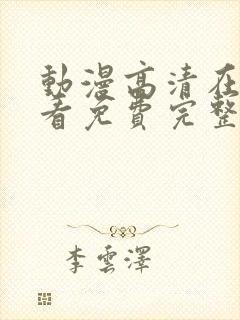 動漫高清在
看免費完整
李雲澤